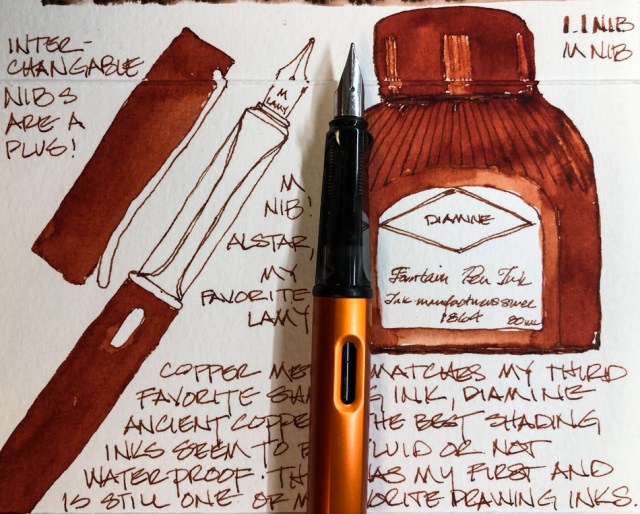 INTER-
CHANGABLE
NIBS
ARE A
PLUS!
M
LAMY
M
NIB!
ALSTAR,
MY
FAVORITE
LAMY
1.1 NIB
M NIB
DIAMINE
Fountain Pen Ink
Ink manufacturers since
1864 80ML
COPPER MATCHES MY THIRD
FAVORITE INK, DIAMINE
ANCIENT THE BEST SHADING
INKS SEEM TO OR NOT
WATERPROOF. MY FIRST AND
IS STILL ONE OF DRAWING INKS.